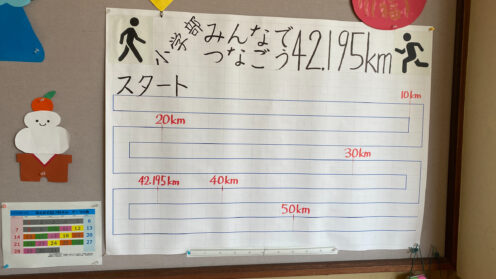 小学部
みんなで
つなごう
42.195km
スタート
10km
20km
30km
42.195km
40km
50km